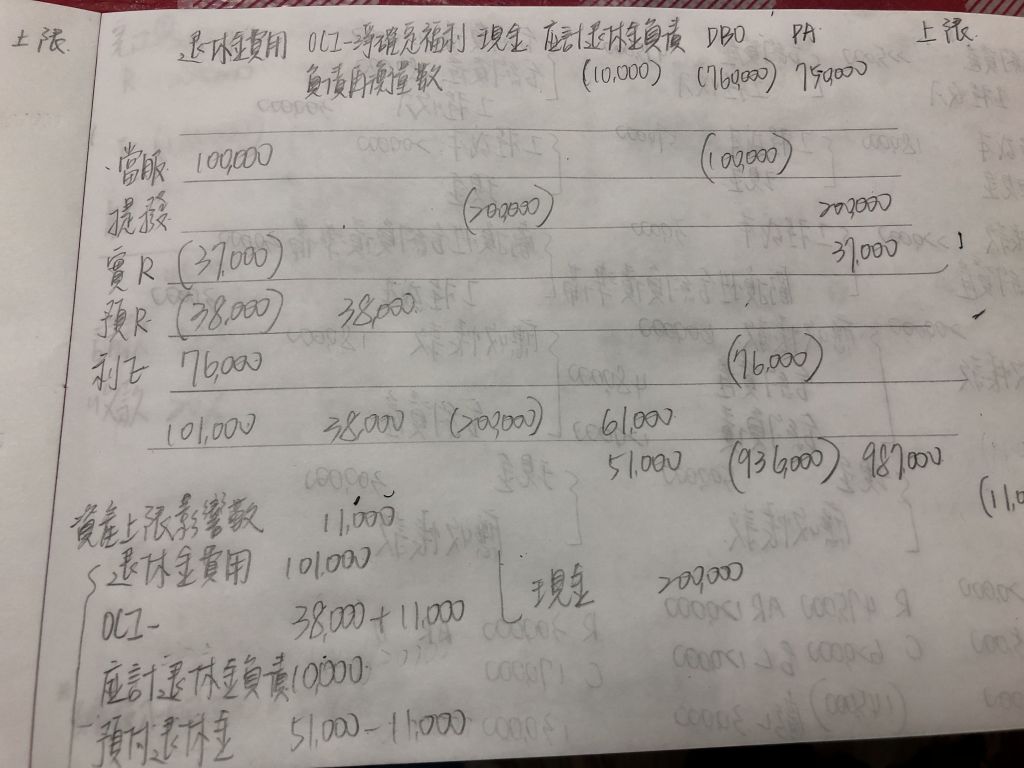 上限 退休金費用 OCI-淨確定福利 現金 應計退休金負債 DBO PA 上限
負債再衡量數 (10,000) (760,000) 750,000
當服 100,000 (100,000)
提撥 (200,000) 200,000
實R (37,000) 37,000
預R (38,000) 38,000
利E 76,000 (76,000)
101,000 38,000 (200,000) 61,000
51,000 (936,000) 987,000
資產上限影響數 11,000
退休金費用 101,000
現金 200,000
OCI- 38,000+11,000
應計退休金負債 10,000
預付退休金 51,000-11,000